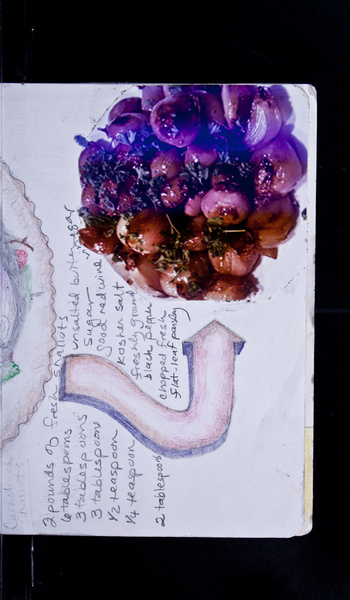 2 pounds of fresh shallots
6 tablespoons unsalted butter
3 tablespoons sugar
3 tablespoons good red wine vinegar
1/2 teaspoon kosher salt
1/4 teaspoon freshly ground
black pepper
2 tablespoons chopped fresh
flat-leaf parsley